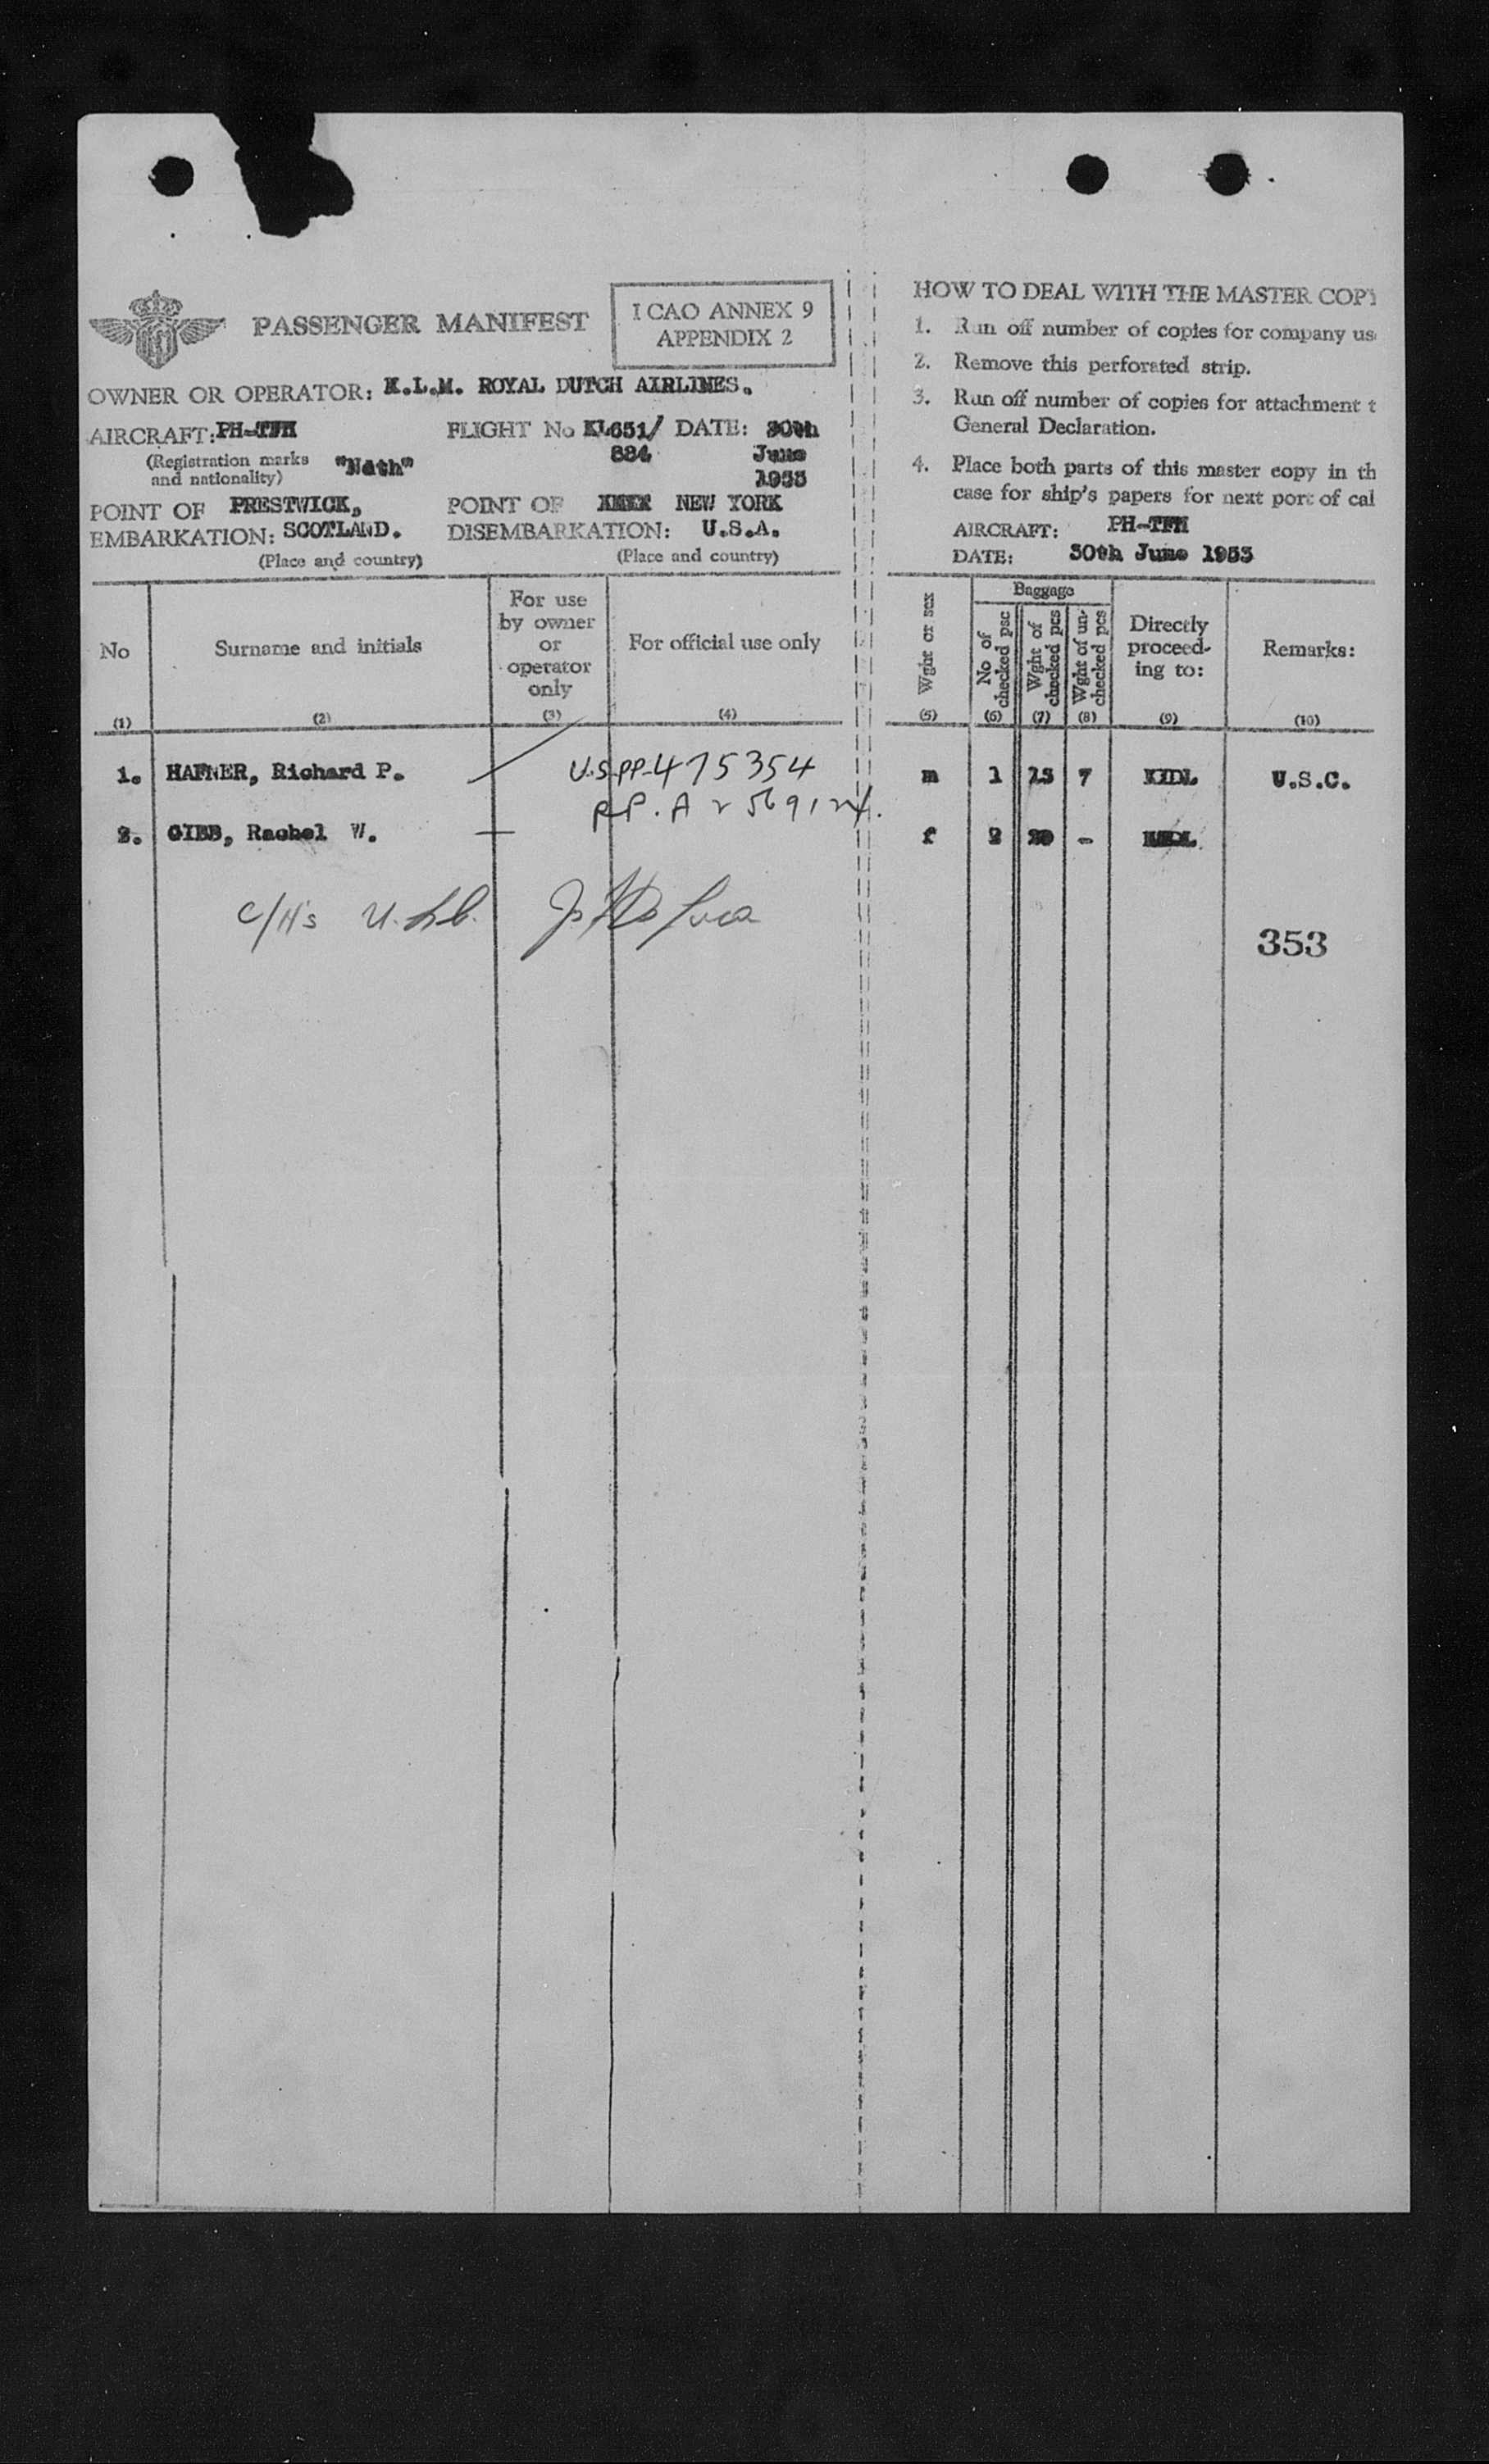 PASSENGER MANIFEST
I CAO ANNEX 9
APPENDIX 2
OWNER OR OPERATOR: K.L.M. ROYAL DUTCH AIRLINES.
AIRCRAFT: PH-TFM FLIGHT No KL651/ DATE: 30th
(Registration marks and nationality) 884 June
1953
POINT OF EMBARKATION: PRESTWICK, SCOTLAND.
(Place and country)
POINT OF DISEMBARKATION: NEW YORK U.S.A.
(Place and country)
HOW TO DEAL WITH THE MASTER COPY
1. Run off number of copies for company us
2. Remove this perforated strip.
3. Run off number of copies for attachment t
General Declaration.
4. Place both parts of this master copy in th
case for ship's papers for next port of cal
AIRCRAFT: PH-TFM
DATE: 30th June 1953
No
(1)
Surname and initials
(2)
For use
by owner
or
operator
only
(3)
For official use only
(4)
Wght or sex
(5)
Baggage
No of
checked psc
(6)
Wght of
checked pcs
(7)
Wght of un-
checked pcs
(8)
Directly
proceed-
ing to:
(9)
Remarks:
(10)
1. HAFNER, Richard P. U.S.PP-475354 m 1 15 7 U.S.C.
2. GIBB, Rachel W. f 2 20 -
353